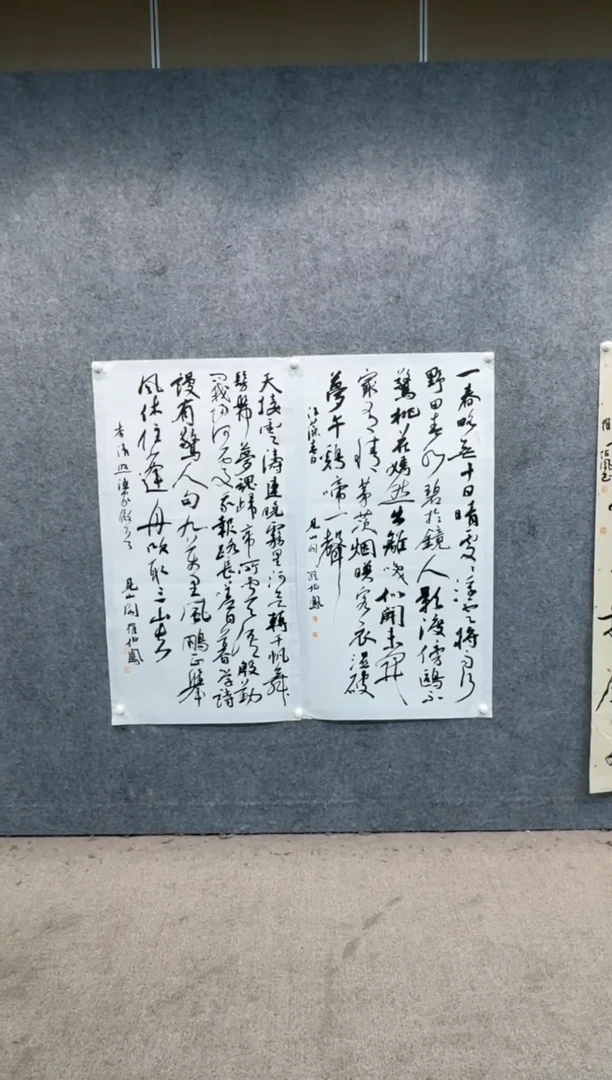 一春略無十日晴處〻浮雲將雨行
野田春水碧於鏡人影渡傍鷗不
驚桃花嫣然出離笑似開未開
最有情茅茨烟暝客衣濕破
夢午鷄啼一聲
汪藻春日 見山閣
天接雲濤連曉霧星河欲轉千帆舞
髣髴夢魂歸帝所聞天語殷勤
問我歸何處我報路長嗟日暮學詩
謾有驚人句九萬里風鵬正舉
風休住蓬舟吹取三山去
李清照漁家傲 見山閣